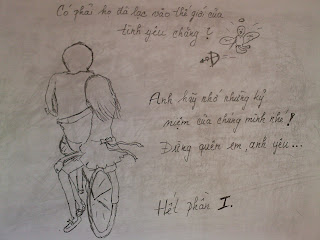 Có phải họ đã lạc vào thế giới của
tình yêu chăng?
Anh hãy nhớ những kỷ
niệm của chúng mình nhé!
Đừng quên em, anh yêu...
Hết phần I.